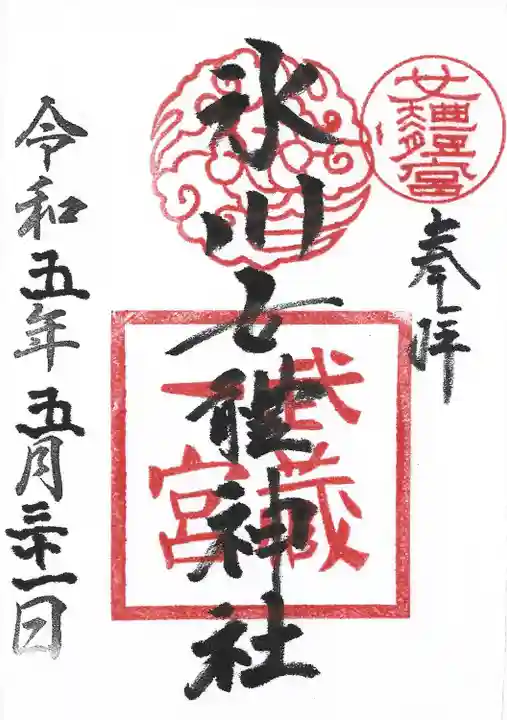 奉拝
氷川女體神社
武蔵
一宮
令和五年五月三十一日